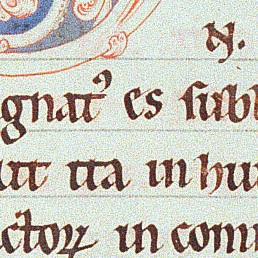 N.
gnatꝰ es sub
ut ita in hu
ctoꝝ in com